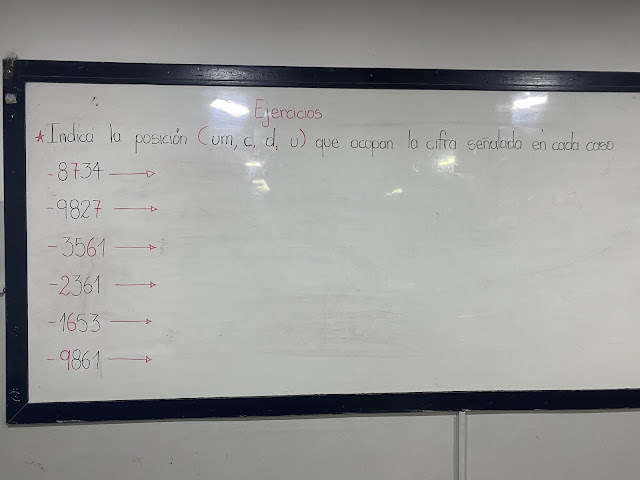 Ejercicios
*Indica la posición (um, c, d, u) que ocupan la cifra señalada en cada caso.
-8734 →
-9827 →
-3561 →
-2361 →
-1653 →
-9861 →